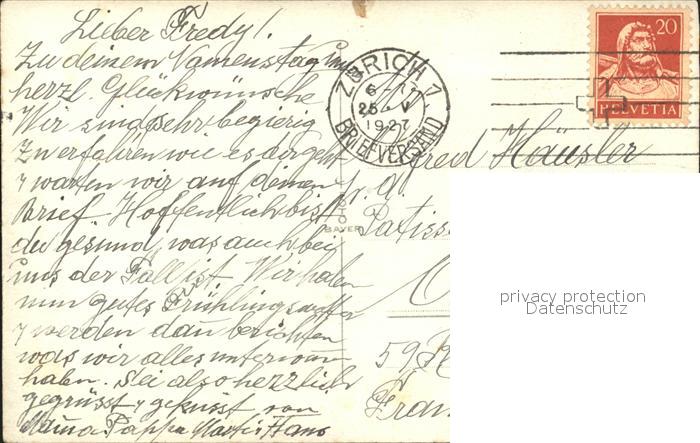 Lieber Fredy!
Zu deinem Namenstag uns
herzl. Glückwünsche
Wir sind sehr begierig
zu erfahren wie es dir geht
& warten wir auf deinen
Brief. Hoffentlich bist
du gesund, was auch bei
uns der Fall ist. Wir haben
nun gutes Frühlingswetter
& werden dan berichten
was wir alles unternom
haben. Sei also herzlich
gegrüsst & geküsst von
Mama Pappa Martin Hans
ZÜRICH 1
25. V
1927
BRIEFVERSAND
20
HELVETIA
Alfred Häusler
Patiss
59 R
Fran
BAYER
privacy protection
Datenschutz